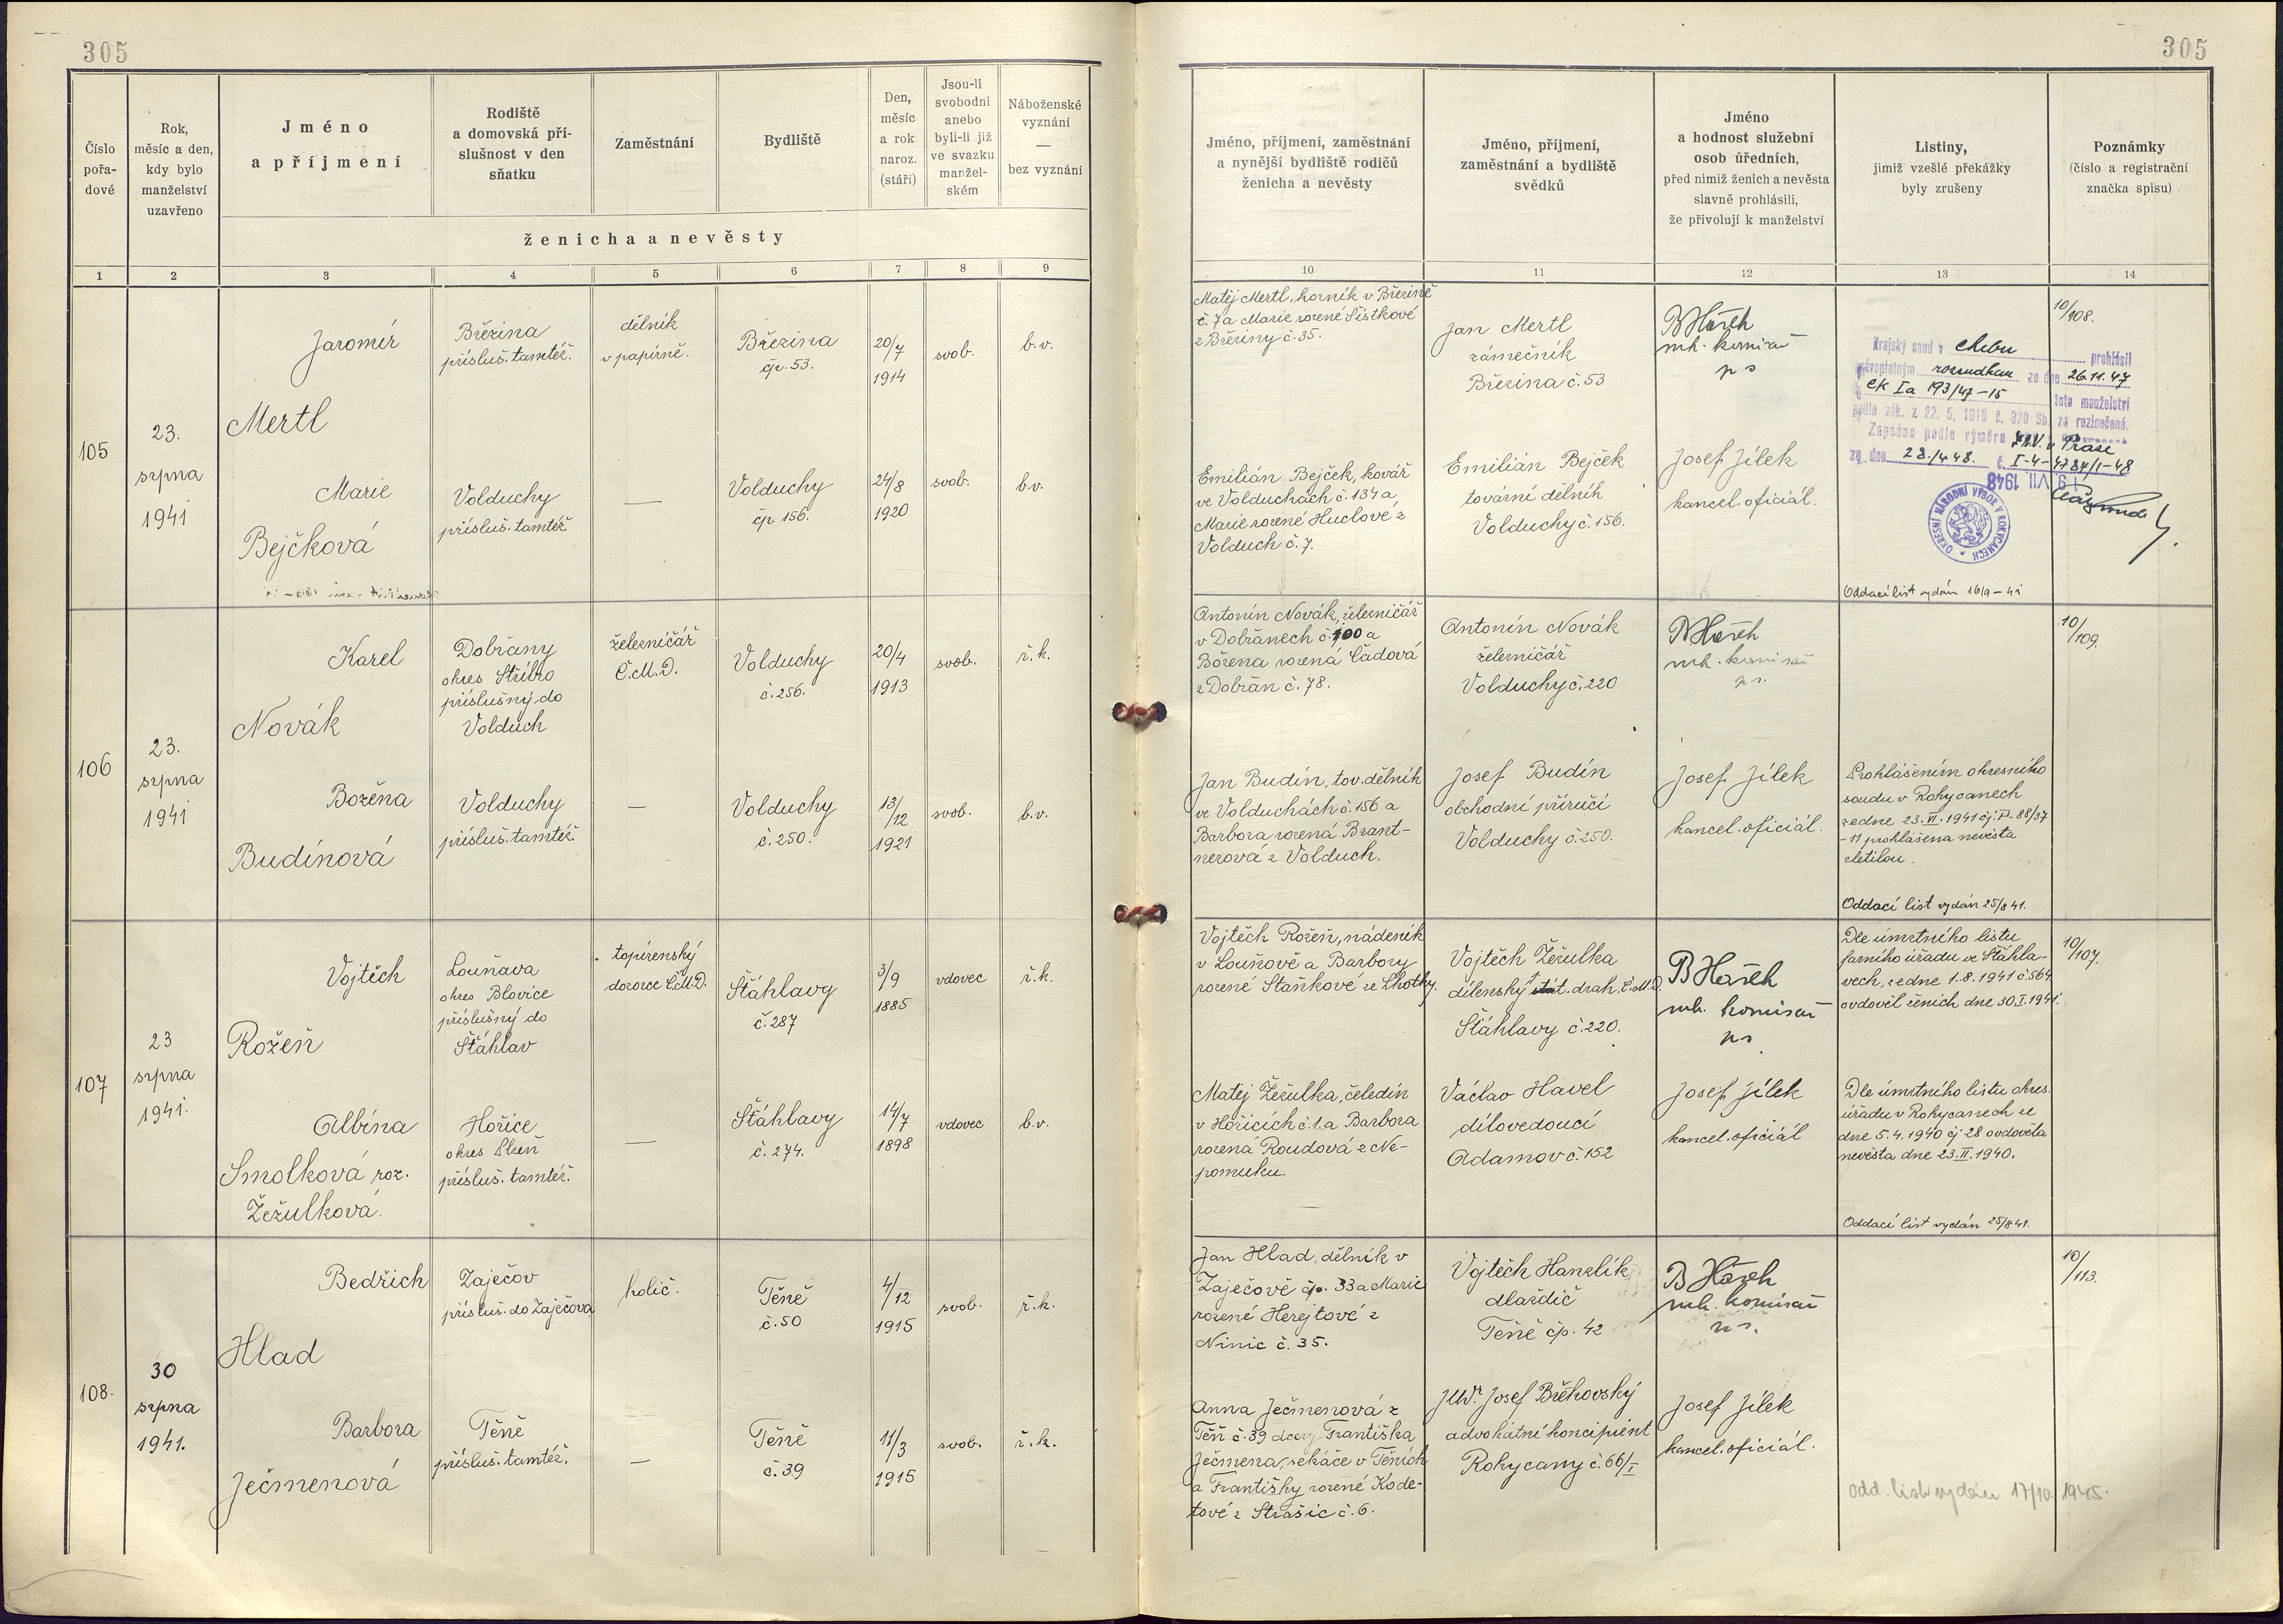 305
305
Číslo
pořa-
dové
Rok,
měsíc a den,
kdy bylo
manželství
uzavřeno
Jméno
a příjmení
Rodiště
a domovská pří-
slušnost v den
sňatku
Zaměstnání
Bydliště
Den,
měsíc
a rok
naroz.
(stáří)
Jsou-li
svobodni
anebo
byli-li již
ve svazku
manžel-
ském
Náboženské
vyznání
—
bez vyznání
ženicha a nevěsty
Jméno, příjmení, zaměstnání
a nynější bydliště rodičů
ženicha a nevěsty
Jméno, příjmení,
zaměstnání a bydliště
svědků
Jméno
a hodnost služební
osob úředních,
před nimiž ženich a nevěsta
slavně prohlásili,
že přivolují k manželství
Listiny,
jimiž vzešlé překážky
byly zrušeny
Poznámky
(číslo a registrační
značka spisu)
1 2 3 4 5 6 7 8 9 10 11 12 13 14
105
23.
srpna
1941
Jaromír
Mertl
Březina
přísluš. tamtéž.
dělník
v papírně.
Březina
čp. 53.
20/7
1914
svob.
b.v.
Matěj Mertl, horník v Březině
č. 7 a Marie rozené Šístkové
z Březiny č. 35.
Jan Mertl
zámečník
Březina č. 53
komisař
ps
10/108.
Krajský soud v Chebu prohlásil
pravoplatným rozsudkem ze dne 26.11.47
Ck Ia 193/47-15 toto manželství
podle zák. z 22. 5. 1919 č. 320 Sb. za rozloučené.
Zapsáno podle výměru Z.N.V. v Praze
ze dne 28./4 48. č. I-4-4784/1-48
19 VII 1948
OKRESNÍ NÁRODNÍ VÝBOR V ROKYCANECH
Marie
Bejčková
Volduchy
přísluš. tamtéž.
—
Volduchy
čp. 156.
24/8
1920
svob.
b.v.
Emilián Bejček, kovář
ve Volduchách č. 134 a
Marie rozené Huclové z
Volduch č. 7.
Emilián Bejček
tovární dělník
Volduchy č. 156.
Josef Jílek
kancel. oficiál.
Oddací list vydán 16/9 - 41
106
23.
srpna
1941
Karel
Novák
Dobřany
okres Stříbro
příslušný do
Volduch
železničář
Č.M.D.
Volduchy
č. 256.
20/4
1913
svob.
ř.k.
Antonín Novák, železničář
v Dobřanech č. 100 a
Božena rozená Čadová
z Dobřan č. 78.
Antonín Novák
železničář
Volduchy č. 220
komisař
ps.
10/109.
Božena
Budínová
Volduchy
přísluš. tamtéž.
—
Volduchy
č. 250.
13/12
1921
svob.
b.v.
Jan Budín, tov. dělník
ve Volduchách č. 156 a
Barbora rozená Brant-
nerová z Volduch.
Josef Budín
obchodní příručí
Volduchy č. 250.
Josef Jílek
kancel. oficiál.
Prohlášením okresního
soudu v Rokycanech
ze dne 23. VI. 1941 čj. P-88/37
-11 prohlášena nevěsta
zletilou.
Oddací list vydán 25/8 41.
107
23
srpna
1941.
Vojtěch
Rožeň
Louňava
okres Blovice
příslušný do
Šťáhlav
topírenský
dozorce Č.M.D.
Šťáhlavy
č. 287
3/9
1885
vdovec
ř.k.
Vojtěch Rožeň, nádeník
v Louňově a Barbory
rozené Staňkové ze Lhotky.
Vojtěch Žežulka
dílenský stát. drah. Č.M.D.
Šťáhlavy č. 220.
komisař
ps
Dle úmrtního listu
farního úřadu ve Šťáhla-
vech, ze dne 1. 8. 1941 č. 564
ovdověl ženich dne 30. I. 1941.
10/107.
Albína
Smolková roz.
Žežulková.
Hořice
okres Plzeň
přísluš. tamtéž.
—
Šťáhlavy
č. 274.
14/7
1898
vdovec
b.v.
Matěj Žežulka, čeledín
v Hořicích č. 1. a Barbora
rozená Roudová z Ne-
pomuku.
Václav Havel
dílovedoucí
Adamov č. 152
Josef Jílek
kancel. oficiál
Dle úmrtního listu okres.
úřadu v Rokycanech ze
dne 5. 4. 1940 čj 28 ovdověla
nevěsta dne 23. II. 1940.
Oddací list vydán 25/8 41.
108.
30
srpna
1941.
Bedřich
Hlad
Zaječov
přísluš. do Zaječova
holič.
Těně
č. 50
4/12
1915
svob.
ř.k.
Jan Hlad, dělník v
Zaječově čp. 33 a Marie
rozené Herejtové z
Ninic č. 35.
Vojtěch Hanzlík
dlaždič
Těně čp. 42
komisař
ps.
10/113.
Barbora
Ječmenová
Těně
přísluš. tamtéž.
—
Těně
č. 39
11/3
1915
svob.
ř.k.
Anna Ječmenová z
Těň č. 39 dcery Františka
Ječmena, sekáče v Těních
a Františky rozené Kode-
tové z Strašic č. 6.
JUDr. Josef Břehovský
advokátní koncipient
Rokycany č. 66/I
Josef Jílek
kancel. oficiál.
odd. list vydán 17/10 1945.